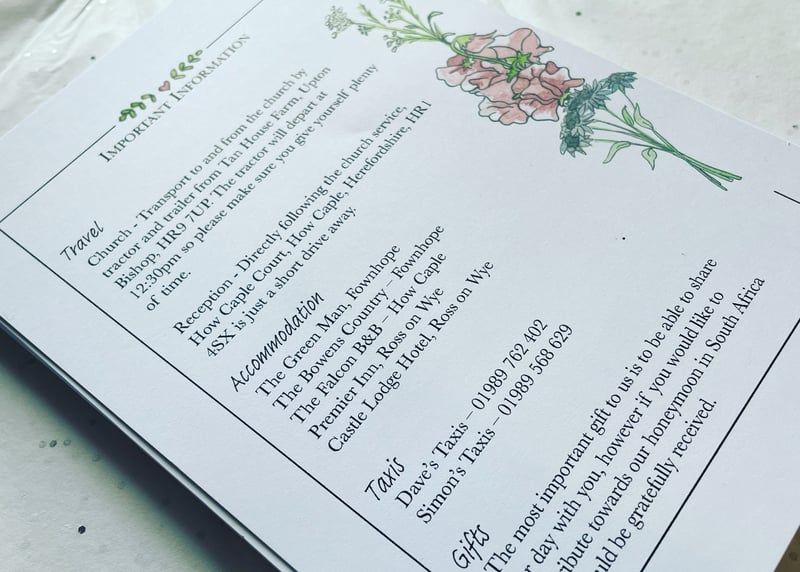 IMPORTANT INFORMATION
Travel
Church - Transport to and from the church by
tractor and trailer from Tan House Farm, Upton
Bishop, HR9 7UP. The tractor will depart at
12:30pm so please make sure you give yourself plenty
of time.
Reception - Directly following the church service,
How Caple Court, How Caple, Herefordshire, HR1
4SX is just a short drive away.
Accommodation
The Green Man, Fownhope
The Bowens Country – Fownhope
The Falcon B&B – How Caple
Premier Inn, Ross on Wye
Castle Lodge Hotel, Ross on Wye
Taxis
Dave's Taxis – 01989 762 402
Simon's Taxis – 01989 568 629
Gifts
The most important gift to us is to be able to share
day with you, however if you would like to
towards our honeymoon in South Africa
be gratefully received.